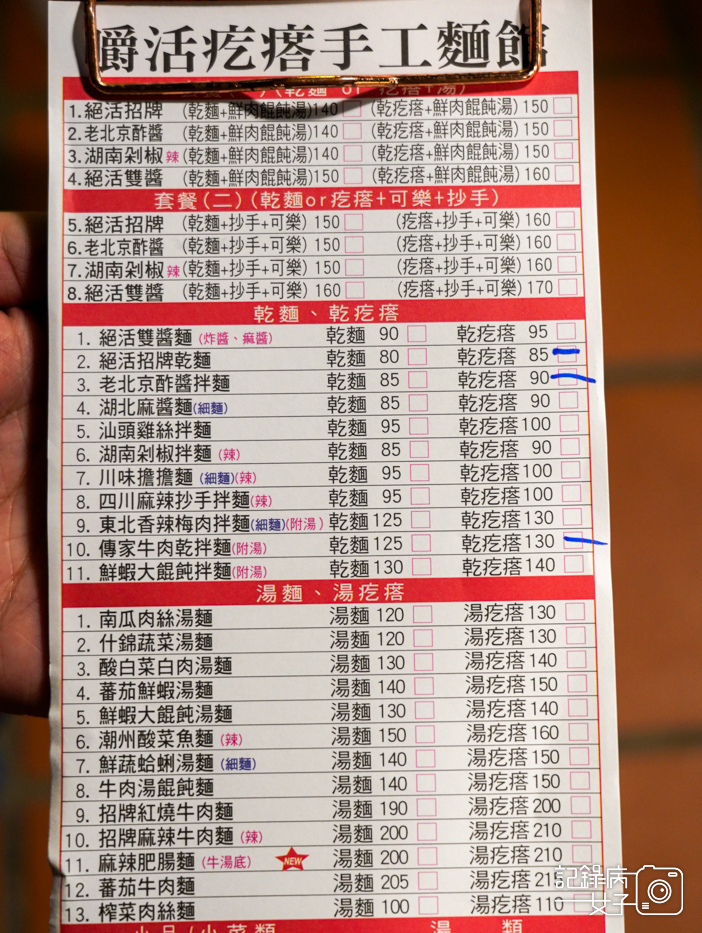 嚼活疙瘩手工麵館
(乾麵 or 疙瘩+湯)
1.絕活招牌 (乾麵+鮮肉餛飩湯)140 (乾疙瘩+鮮肉餛飩湯)150
2.老北京酢醬 (乾麵+鮮肉餛飩湯)140 (乾疙瘩+鮮肉餛飩湯)150
3.湖南剁椒 辣 (乾麵+鮮肉餛飩湯)140 (乾疙瘩+鮮肉餛飩湯)150
4.絕活雙醬 (乾麵+鮮肉餛飩湯)150 (乾疙瘩+鮮肉餛飩湯)160
套餐(二)(乾麵or疙瘩+可樂+抄手)
5.絕活招牌 (乾麵+抄手+可樂) 150 (疙瘩+抄手+可樂) 160
6.老北京酢醬 (乾麵+抄手+可樂) 150 (疙瘩+抄手+可樂) 160
7.湖南剁椒 辣 (乾麵+抄手+可樂) 150 (疙瘩+抄手+可樂) 160
8.絕活雙醬 (乾麵+抄手+可樂) 160 (疙瘩+抄手+可樂) 170
乾麵、乾疙瘩
1. 絕活雙醬麵 (炸醬、痲醬) 乾麵 90 乾疙瘩 95
2. 絕活招牌乾麵 乾麵 80 乾疙瘩 85
3. 老北京酢醬拌麵 乾麵 85 乾疙瘩 90
4. 湖北麻醬麵(細麵) 乾麵 85 乾疙瘩 90
5. 汕頭雞絲拌麵 乾麵 95 乾疙瘩100
6. 湖南剁椒拌麵 (辣) 乾麵 85 乾疙瘩 90
7. 川味擔擔麵 (細麵)(辣) 乾麵 95 乾疙瘩100
8. 四川麻辣抄手拌麵(辣) 乾麵 95 乾疙瘩100
9. 東北香辣梅肉拌麵(細麵)(附湯) 乾麵125 乾疙瘩130
10. 傳家牛肉乾拌麵(附湯) 乾麵125 乾疙瘩130
11. 鮮蝦大餛飩拌麵(附湯) 乾麵130 乾疙瘩140
湯麵、湯疙瘩
1. 南瓜肉絲湯麵 湯麵 120 湯疙瘩130
2. 什錦蔬菜湯麵 湯麵 120 湯疙瘩130
3. 酸白菜白肉湯麵 湯麵 130 湯疙瘩140
4. 蕃茄鮮蝦湯麵 湯麵 140 湯疙瘩150
5. 鮮蝦大餛飩湯麵 湯麵 130 湯疙瘩140
6. 潮州酸菜魚麵 (辣) 湯麵 150 湯疙瘩160
7. 鮮蔬蛤蜊湯麵 (細麵) 湯麵 140 湯疙瘩150
8. 牛肉湯餛飩麵 湯麵 140 湯疙瘩150
9. 招牌紅燒牛肉麵 湯麵 190 湯疙瘩200
10. 招牌麻辣牛肉麵 (辣) 湯麵 200 湯疙瘩210
11. 麻辣肥腸麵 (牛湯底) NEW 湯麵 200 湯疙瘩210
12. 蕃茄牛肉麵 湯麵 205 湯疙瘩215
13. 榨菜肉絲麵 湯麵 100 湯疙瘩110
小品/小菜類 湯 類
記錄病女子